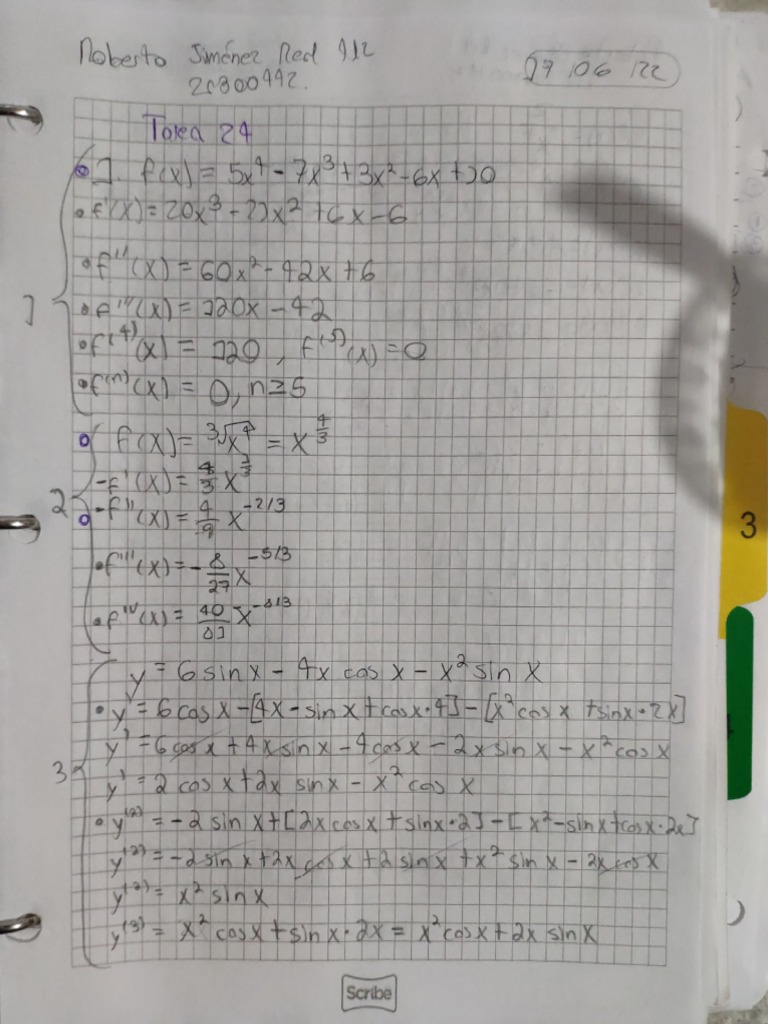 Roberto Jiménez Red 112
20300442.
17/06/22
Tarea 24
1. f(x) = 5x⁴ - 7x³ + 3x² - 6x + 10
f'(x) = 20x³ - 21x² + 6x - 6
f''(x) = 60x² - 42x + 6
1
f'''(x) = 120x - 42
f⁽⁴⁾(x) = 120, f⁽⁵⁾(x) = 0
f⁽ⁿ⁾(x) = 0, n ≥ 5
f(x) = ³√x⁴ = x^(4/3)
- f'(x) = 4/3 x^(1/3)
2
- f''(x) = 4/9 x^(-2/3)
f'''(x) = -8/27 x^(-5/3)
f^(IV)(x) = 40/81 x^(-8/3)
y = 6 sin x - 4x cos x - x² sin x
y' = 6 cos x - [4x - sin x + cos x · 4] - [x² cos x + sin x · 2x]
y' = 6 cos x + 4x sin x - 4 cos x - 2x sin x - x² cos x
3
y' = 2 cos x + 2x sin x - x² cos x
y⁽²⁾ = -2 sin x + [2x cos x + sin x · 2] - [x² - sin x + cos x · 2x]
y⁽²⁾ = -2 sin x + 2x cos x + 2 sin x + x² sin x - 2x cos x
y⁽²⁾ = x² sin x
y⁽³⁾ = x² cos x + sin x · 2x = x² cos x + 2x sin x
Scribe
3